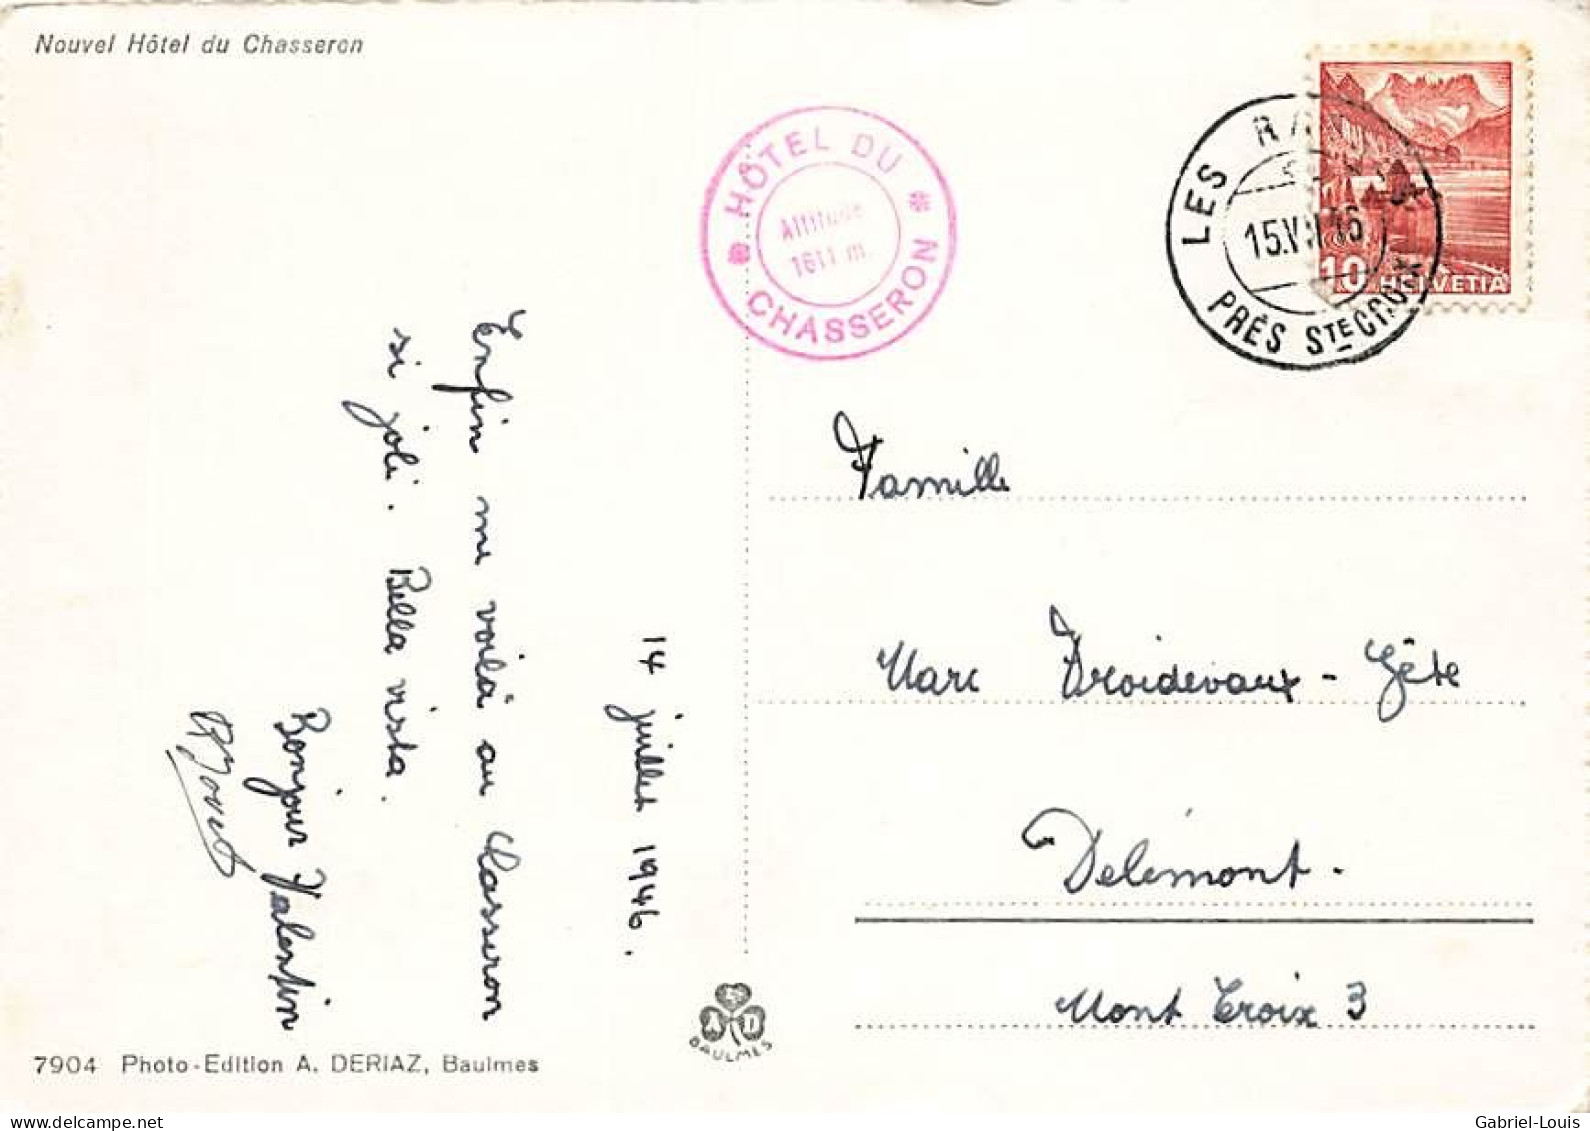 Nouvel Hôtel du Chasseron
HÔTEL DU
CHASSERON
Altitude
1611 m.
LES RA
15.VII.46
PRÈS STE CROIX
10 HELVETIA
14 juillet 1946.
Enfin me voilà au Chasseron
si joli. Bella vista.
Bonjour Valentin
Famille
Marc Froidevaux - Fête
Delémont.
Mont Croix 3
A D
BAULMES
7904 Photo-Edition A. DERIAZ, Baulmes
Gabriel-Louis